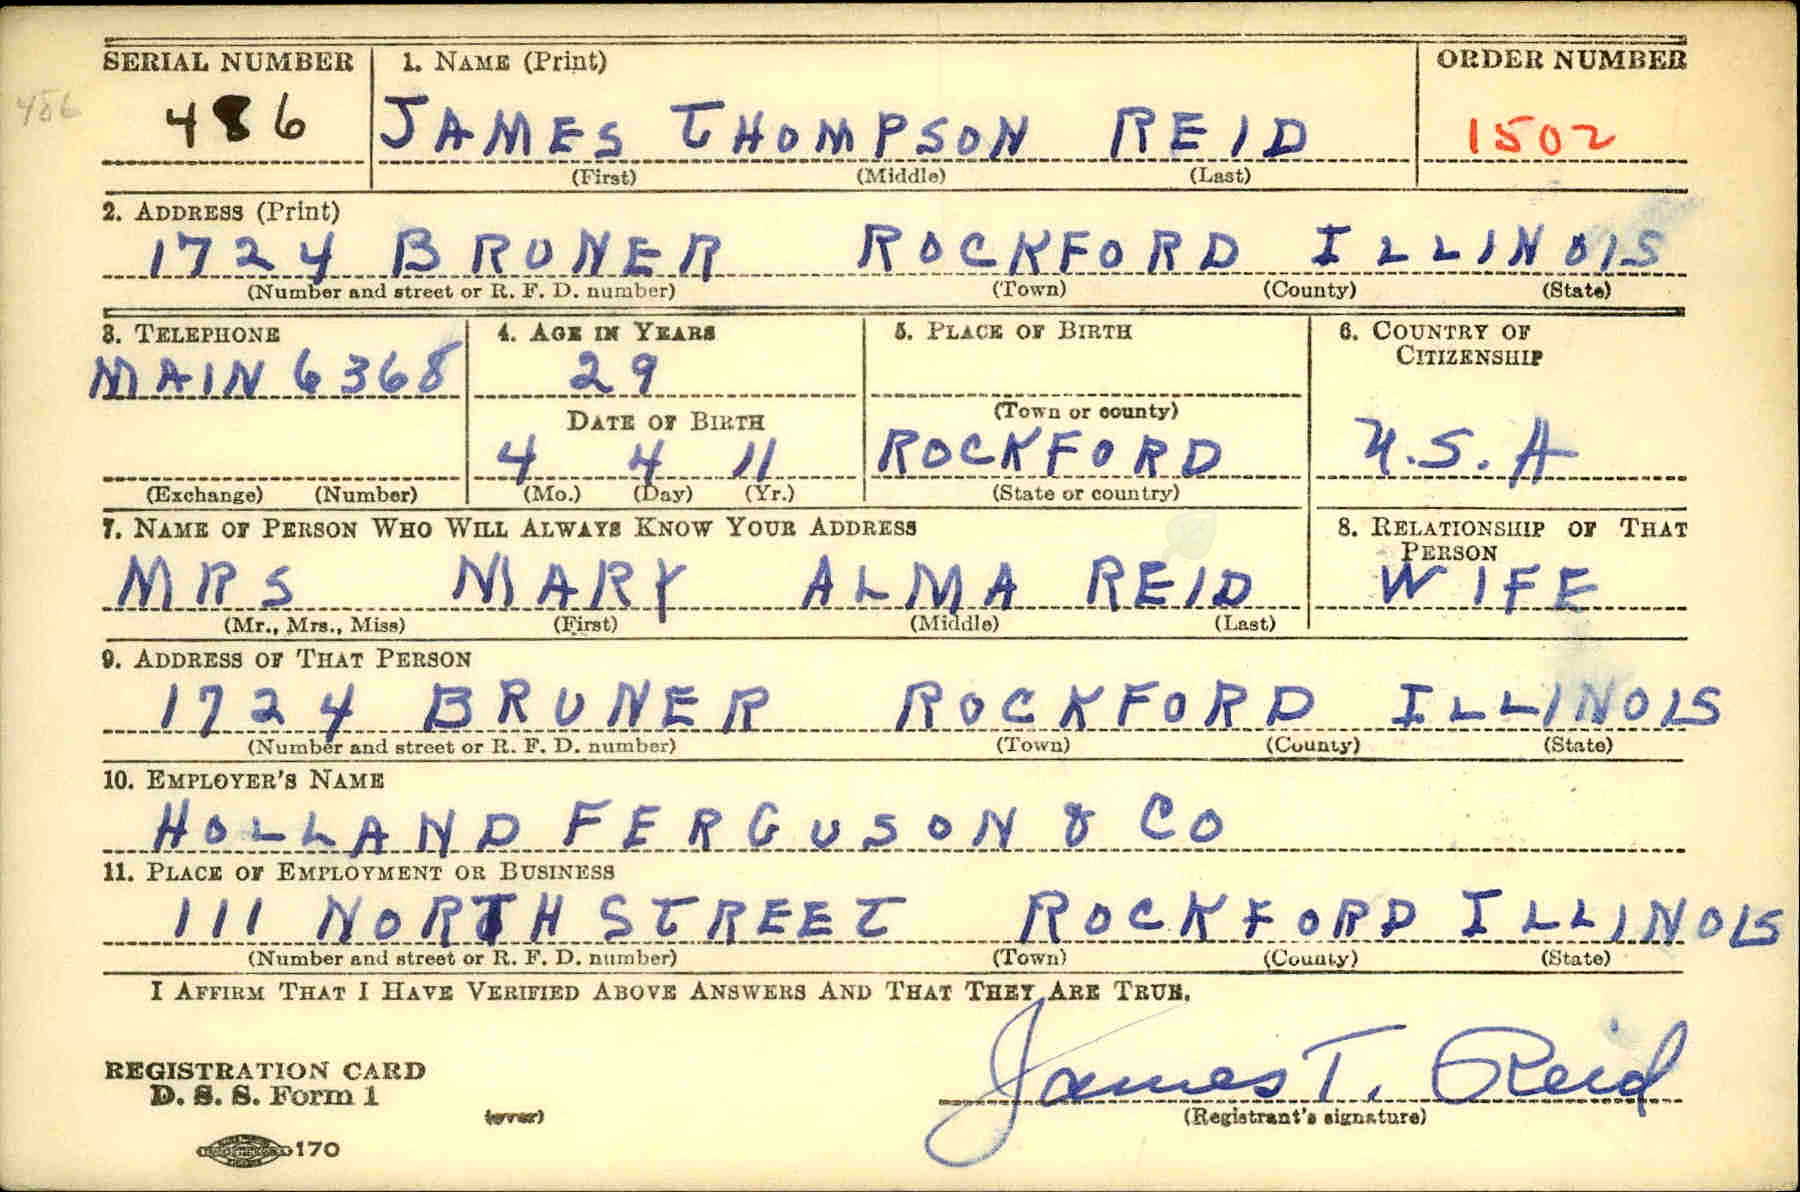 SERIAL NUMBER 1. NAME (Print) ORDER NUMBER
486 486 JAMES THOMPSON REID 1502
(First) (Middle) (Last)
2. ADDRESS (Print)
1724 BRUNER ROCKFORD ILLINOIS
(Number and street or R. F. D. number) (Town) (County) (State)
3. TELEPHONE 4. AGE IN YEARS 5. PLACE OF BIRTH 6. COUNTRY OF CITIZENSHIP
MAIN 6368 29
DATE OF BIRTH (Town or county)
4 4 11 ROCKFORD U.S.A
(Exchange) (Number) (Mo.) (Day) (Yr.) (State or country)
7. NAME OF PERSON WHO WILL ALWAYS KNOW YOUR ADDRESS 8. RELATIONSHIP OF THAT PERSON
MRS MARY ALMA REID WIFE
(Mr., Mrs., Miss) (First) (Middle) (Last)
9. ADDRESS OF THAT PERSON
1724 BRUNER ROCKFORD ILLINOIS
(Number and street or R. F. D. number) (Town) (County) (State)
10. EMPLOYER'S NAME
HOLLAND FERGUSON & CO
11. PLACE OF EMPLOYMENT OR BUSINESS
111 NORTH STREET ROCKFORD ILLINOIS
(Number and street or R. F. D. number) (Town) (County) (State)
I AFFIRM THAT I HAVE VERIFIED ABOVE ANSWERS AND THAT THEY ARE TRUE.
REGISTRATION CARD
D. S. S. Form 1 James T. Reid
(over) (Registrant's signature)
170